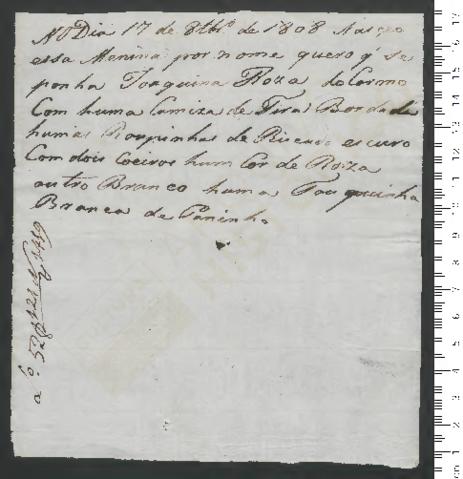 NO Dia 17 de 8tbrº de 1808 Nasceo
essa Menina por nome quero q' se
ponha Joaquina Roza do Carmo
Com huma Camiza de Tira Bordada
humas Roupinhas de Riscado escuro
Com dois Coeiros hum Cor de Roza
outro Branco huma Touquinha
Branca de Paninho
a fº. 528